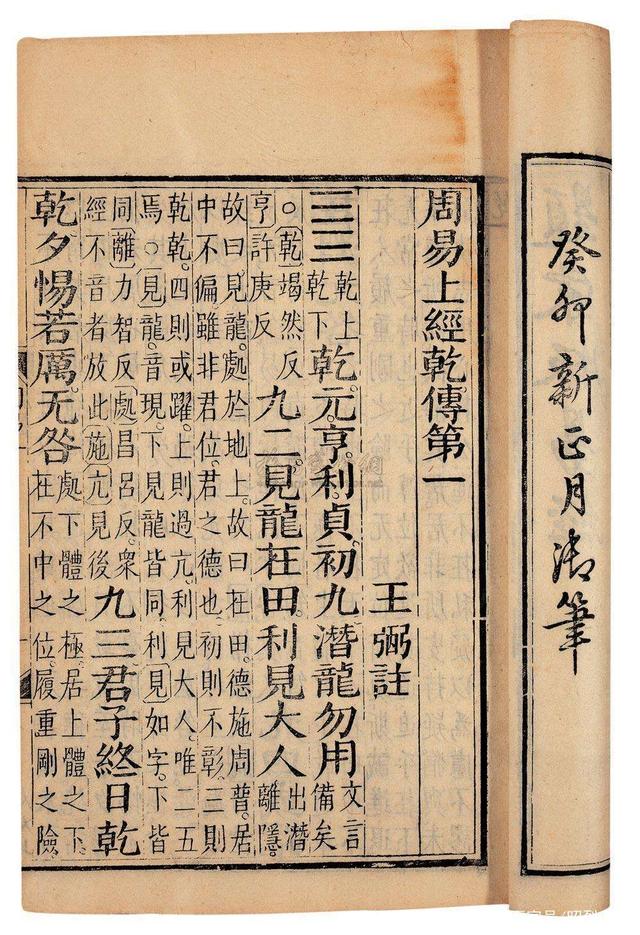 癸卯新正月御筆
周易上經乾傳第一
王弼註
䷀乾上乾下乾。元。亨。利。貞。初九潛龍勿用文言備矣
○乾竭然反亨許庚反九二見龍在田。利見大人出潛離隱。
故曰見龍。處於地上。故曰在田。德施周普。居
中不偏。雖非君位。君之德也。初則不彰。三則
乾乾。四則或躍。上則過亢。利見大人。唯二五
焉。○見龍。音現。下見龍皆同。利見如字。下皆
同離力智反處昌呂反。衆
經不音者放此施亢見後九三君子終日乾
乾夕惕若厲。无咎處下體之極。居上體之下。
在不中之位。履重剛之險。